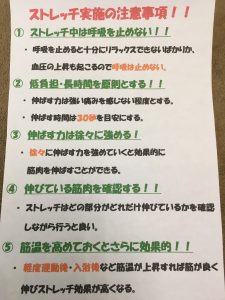 ストレッチ実施の注意事項！！
① ストレッチ中は呼吸を止めない！！
・ 呼吸を止めると十分にリラックスできないばかりか、
血圧の上昇も起こるので呼吸は止めない。
② 低負担・長時間を原則とする！！
・ 伸ばす力は強い痛みを感じない程度とする。
・ 伸ばす時間は３０秒を目安にする。
③ 伸ばす力は徐々に強める！
・ 徐々に伸ばす力を強めていくと効果的に
筋肉を伸ばすことができる。
④ 伸びている筋肉を確認する！！
・ ストレッチはどの部分がどれだけ伸びているかを確認
しながら行うと良い。
⑤ 筋温を高めておくとさらに効果的！！
・ 軽度運動後・入浴後など筋温が上昇すれば筋が良く
伸びストレッチ効果が高くなる。